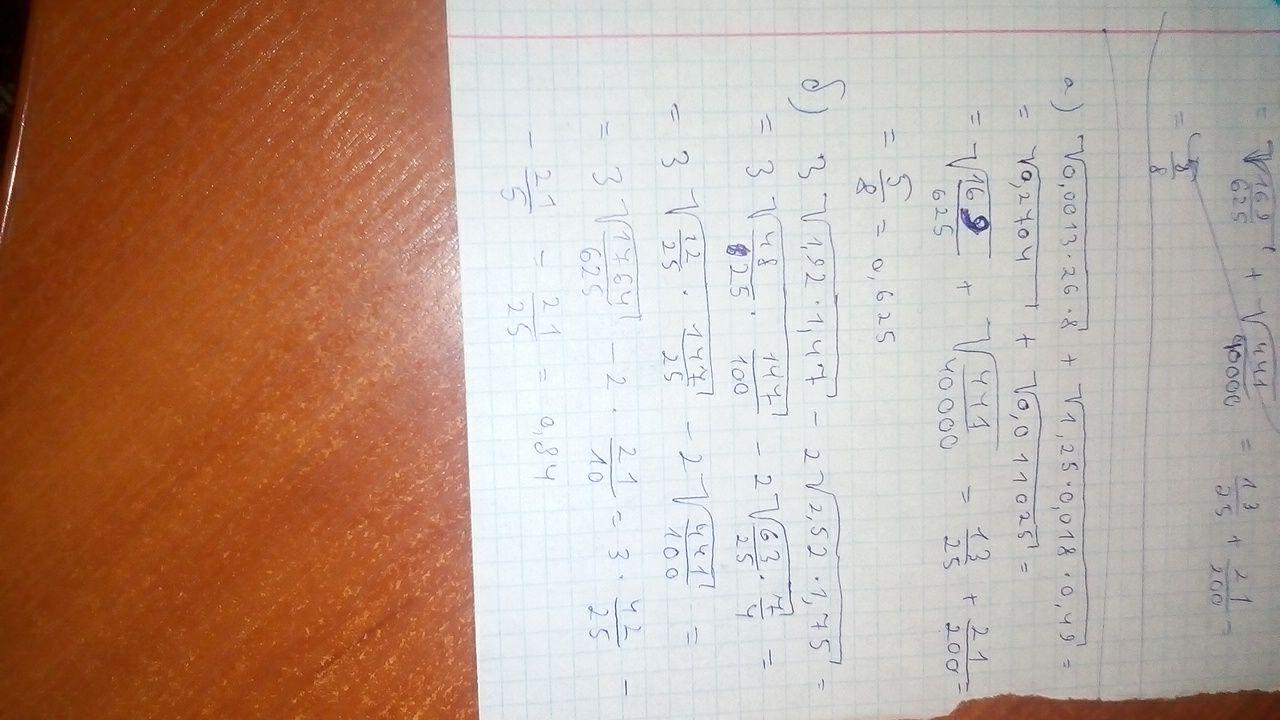 = √169/625 + √441/40000 = 13/25 + 21/200 =
= 5/8
а) √0,0013·26·8 + √1,25·0,018·0,49 =
= √0,2704 + √0,011025 =
= √169/625 + √441/40000 = 13/25 + 21/200 =
= 5/8 = 0,625
б) 3√1,92·1,47 - 2√2,52·1,75 =
= 3√48/25 · 147/100 - 2√63/25 · 7/4 =
= 3√12/25 · 147/25 - 2√441/100 =
= 3√1764/625 - 2 · 21/10 = 3 · 42/25 -
- 21/5 = 21/25 = 0,84